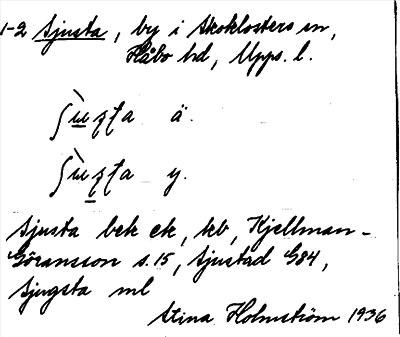 1-2 Sjusta, by i Skoklosters sn,
Håbo hd, Upps. l.
ä.
y.
Sjusta bek ek, kb, Kjellman-
Göransson s.15, Sjustad G84,
Sjugsta ml
Stina Holmström 1936